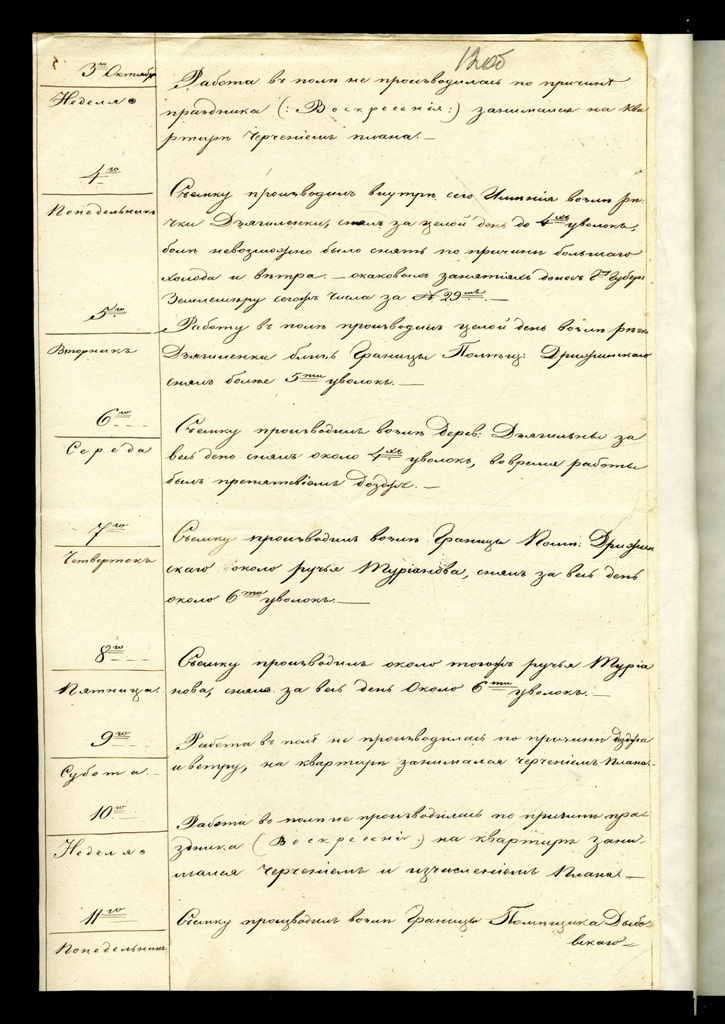 120об
3го Октября
Неделя
Работа въ полѣ не производилась по причинѣ
праздника (: Воскресенія :) занимался на ква
ртирѣ черченіемъ плана. —
4го
Понедельникъ
Съемку производилъ внутрѣ сего Имѣнія возлѣ рѣ
чки Дзягиленки, снялъ за целой день до 4хъ уволокъ,
болѣ невозможно было снять по причинѣ большаго
холода и вѣтра. — о каковыхъ занятіяхъ донесъ Губер:
Землемѣру сегожъ числа за № 29мъ. —
5го
Вторникъ
Работу въ полѣ производилъ целой день возлѣ рѣчк
Дзягиленки близь Границы Помѣщ:
снялъ болѣе 5ти уволокъ. —
6го
Середа
Съемку производилъ возлѣ дерев: Дзягильны за
весь день снялъ около 4хъ уволокъ, во время работы
былъ препятствіемъ дождь. —
7го
Четвертокъ
Съемку производилъ возлѣ Границы Помѣ:
скаго около ручья Туріанова, снялъ за весь день
около 6ти уволокъ. —
8го
Пятница
Съемку производилъ около тогожъ ручья Туріа
нова, снялъ за весь день около 6ти уволокъ. —
9го
Субота
Работа въ полѣ не производилась по причинѣ дождя
и ветру, на квартирѣ занимался черченіемъ плана. —
10го
Неделя
Работа въ полѣ не производилась по причинѣ пра-
здника (Воскресеній :) на квартирѣ зани
мался черченіемъ и изчисленіемъ плана. —
11го
Понедельникъ
Съемку производилъ возлѣ Границы Помѣщика Дыбо
вскаго —